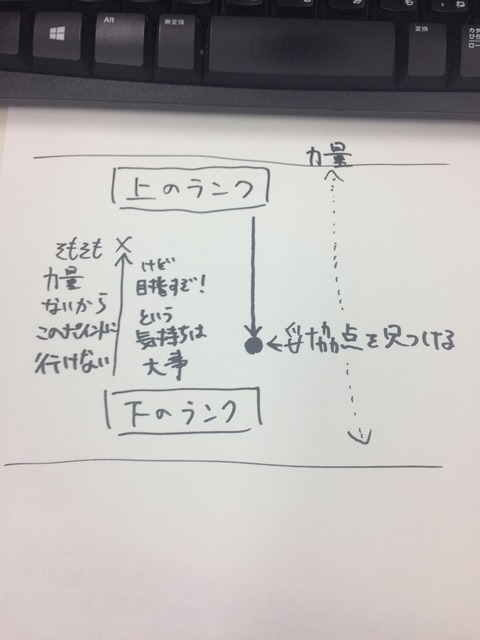 Alt
無変換
変換
力量
上のランク
そもそも
力量
ないから
このポイントに
行けない
けど
目指すぞ！
という
気持ちは
大事
妥協点を見つける
下のランク